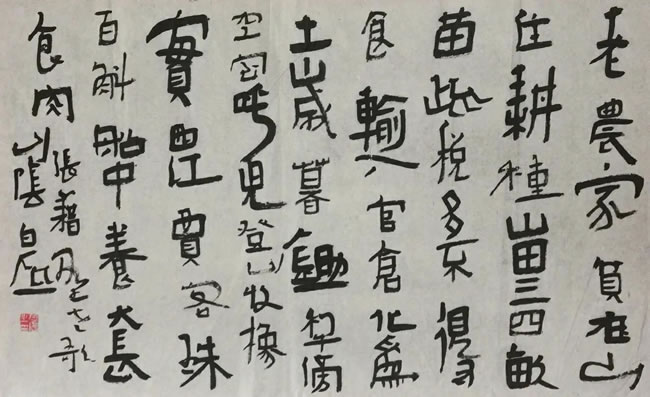 老農家貧在山
住耕種山田三四畝
苗疏稅多不得
食輸入官倉化為
土歲暮鋤犁傍
空室呼兒登山收橡
實西江賈客珠
百斛船中養犬長
食肉
張籍野老歌
山陰白